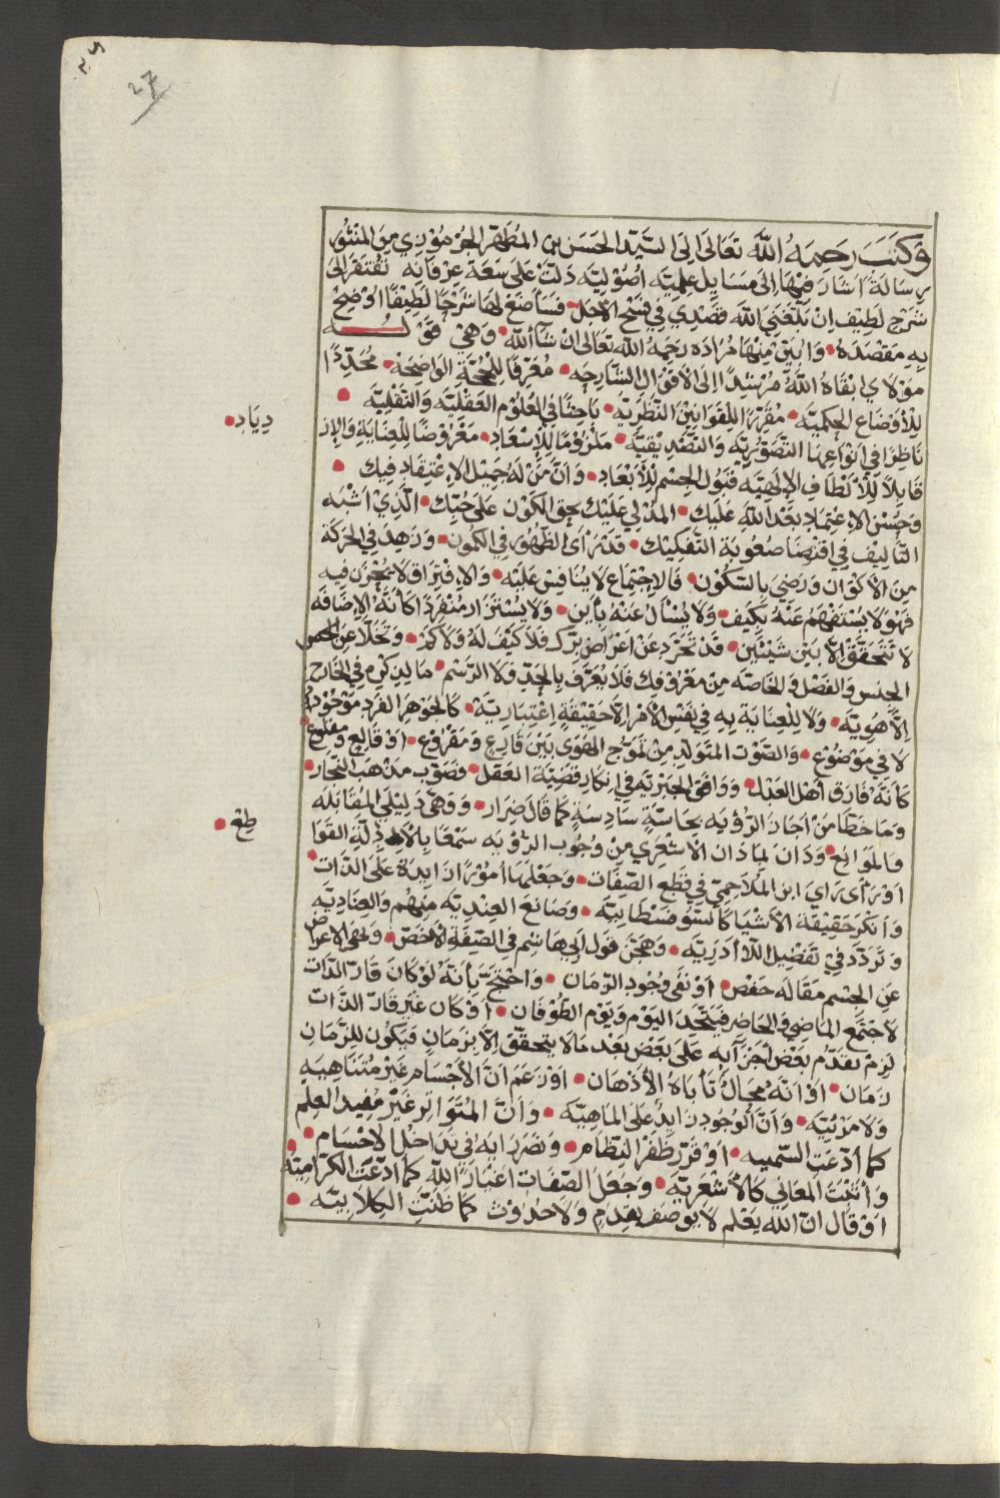 27
وكتب رحمه الله تعالى الى السيد الحسن بن المطهر الجرموزي من المنثور
رسالة اشار فيها إلى مسايل علمية اصولية دلت على سعة عرفانه تفتقر إلى
شرح لطيف ان بلغني الله قصدي في فسح الاجل فسأصنع لها شرحا لطيفا اوضح
به مقصده وابين منها مراده رحمه الله تعالى ان شآ الله وهي قوله
مولاي ابقاه الله مرشدا إلى الاقوال الشارحه معرفا للحجة الواضحة محددا
للأوضاع الحكمية مقررا للقوانين النظرية باحثا في العلوم العقلية والنقلية
ناظرا في انواعها التصورية والتصديقية ملزوما للإسعاد معروضا للعناية والإر
دياد
قابلا للألطاف الإلهية قبول الجسم للأبعاد وان من له جميل الاعتقاد فيك
وحسن الاعتماد بعد الله عليك المدلي عليك بحق الكون على حبك الذي اشبه
التأليف في اقتضا صعوبة التفكيك قد رأى الظهور في الكمون وزهد في الحركة
من الأكوان ورضي بالسكون فالاجتماع لا ينافس عليه والافتراق لا فيه
فهو لا يستفهم عنه بكيف ولا يسأل عنه بأين ولا يستزار منفردا كأنه الإضافة
لا تتحقق الا بين شيئين قد تجرد عن اعراض فلا كيف له ولا كم وتخلا عن
الجنس والفصل والخاصه من معروفك فلا يعرف بالحد ولا الرسم ما لذكره في الخارج
الا هوية ولا للعناية به في نفس الأمر إلا حقيقة اعتبارية كالجوهر الفرد موجودا
لا في موضوع والصوت المتولد من تموج الهوى بين قارع ومقروع او قالع ومقلوع
كأنه فارق أهل العدل ووافق الجبرية في انكار قضية العقل وصوب مذهب النجار
وما خطا من اجاز الرؤية بحاسة سادسة كما قال ضرار ووهى دليلي المقابلة
والموانع ودان لما دان الاشعري من وجوب الرؤيه سمعا بالأدلة القوا
طع
او رأى راي ابن الملاحمي في قطع الصفات وجعلها أمورا زايدة على الذات
وأنكر حقيقة الأشيا كالسوفسطايية وصانع العندية منهم والعنادية
وتردد في تفضيل اللاأدرية وهجن قول ابي هاشم في الصفة الأخص ونفى الاعراض
عن الجسم مقالة حفص او نفى وجود الزمان واحتج بأنه لو كان قار الذات
لاجتمع الماضي والحاضر فيتحد اليوم ويوم الطوفان أو كان غير قار الذات
لزم تقدم بعض أجزآيه على بعض بعد ما لا يتحقق الا بزمان فيكون للزمان
زمان او انه محال تأباه الأذهان او زعم ان الأجسام غير متناهية
ولا مرئية وان الوجود زايد على الماهية وان المتواتر غير مفيد العلم
كما أدعت السمنيه او قرر طفر النظام ونصر رايه في تداخل الاجسام
وأثبت المعاني كالأشعرية وجعل الصفات اغيار الله كما ادعت الكرامية
اوقال ان الله يعلم لا يوصف بقدم ولا حدوث كما ظنت الكلابيه